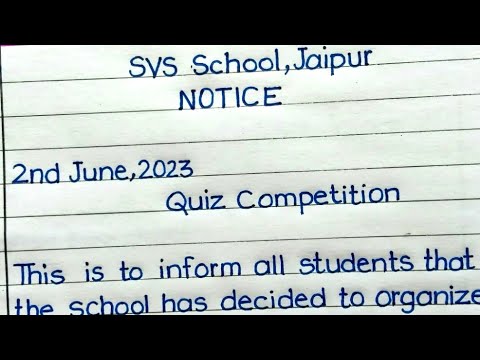 SVS School, Jaipur
NOTICE
2nd June, 2023
Quiz Competition
This is to inform all students that
the school has decided to organize